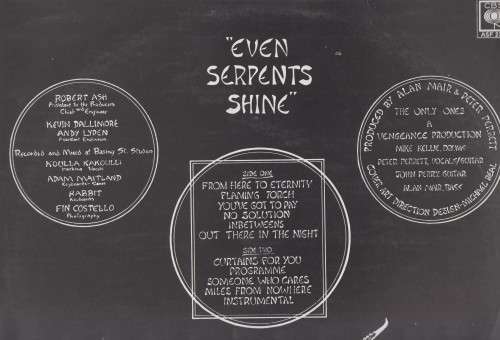 "EVEN
SERPENTS
SHINE"
CBS
ROBERT ASH
Assistant to the Producers
Chief and Engineer
KEVIN DALLIMORE
ANDY LYDEN
Assistant Engineers
Recorded and Mixed at Basing St. Studios
KOULLA KAKOULLI
Backing Vocals
ADAM MAITLAND
Keyboards - Saxes
RABBIT
Keyboards
FIN COSTELLO
Photography
SIDE ONE
FROM HERE TO ETERNITY
FLAMING TORCH
YOU'VE GOT TO PAY
NO SOLUTION
INBETWEENS
OUT THERE IN THE NIGHT
SIDE TWO
CURTAINS FOR YOU
PROGRAMME
SOMEONE WHO CARES
MILES FROM NOWHERE
INSTRUMENTAL
PRODUCED BY ALAN MAIR & PETER PERRETT
THE ONLY ONES
A
VENGEANCE PRODUCTION
MIKE KELLIE, DRUMS
PETER PERRETT, VOCALS/GUITAR
JOHN PERRY, GUITAR
ALAN MAIR, BASS
COVER ART DIRECTION DESIGN - MICHAEL